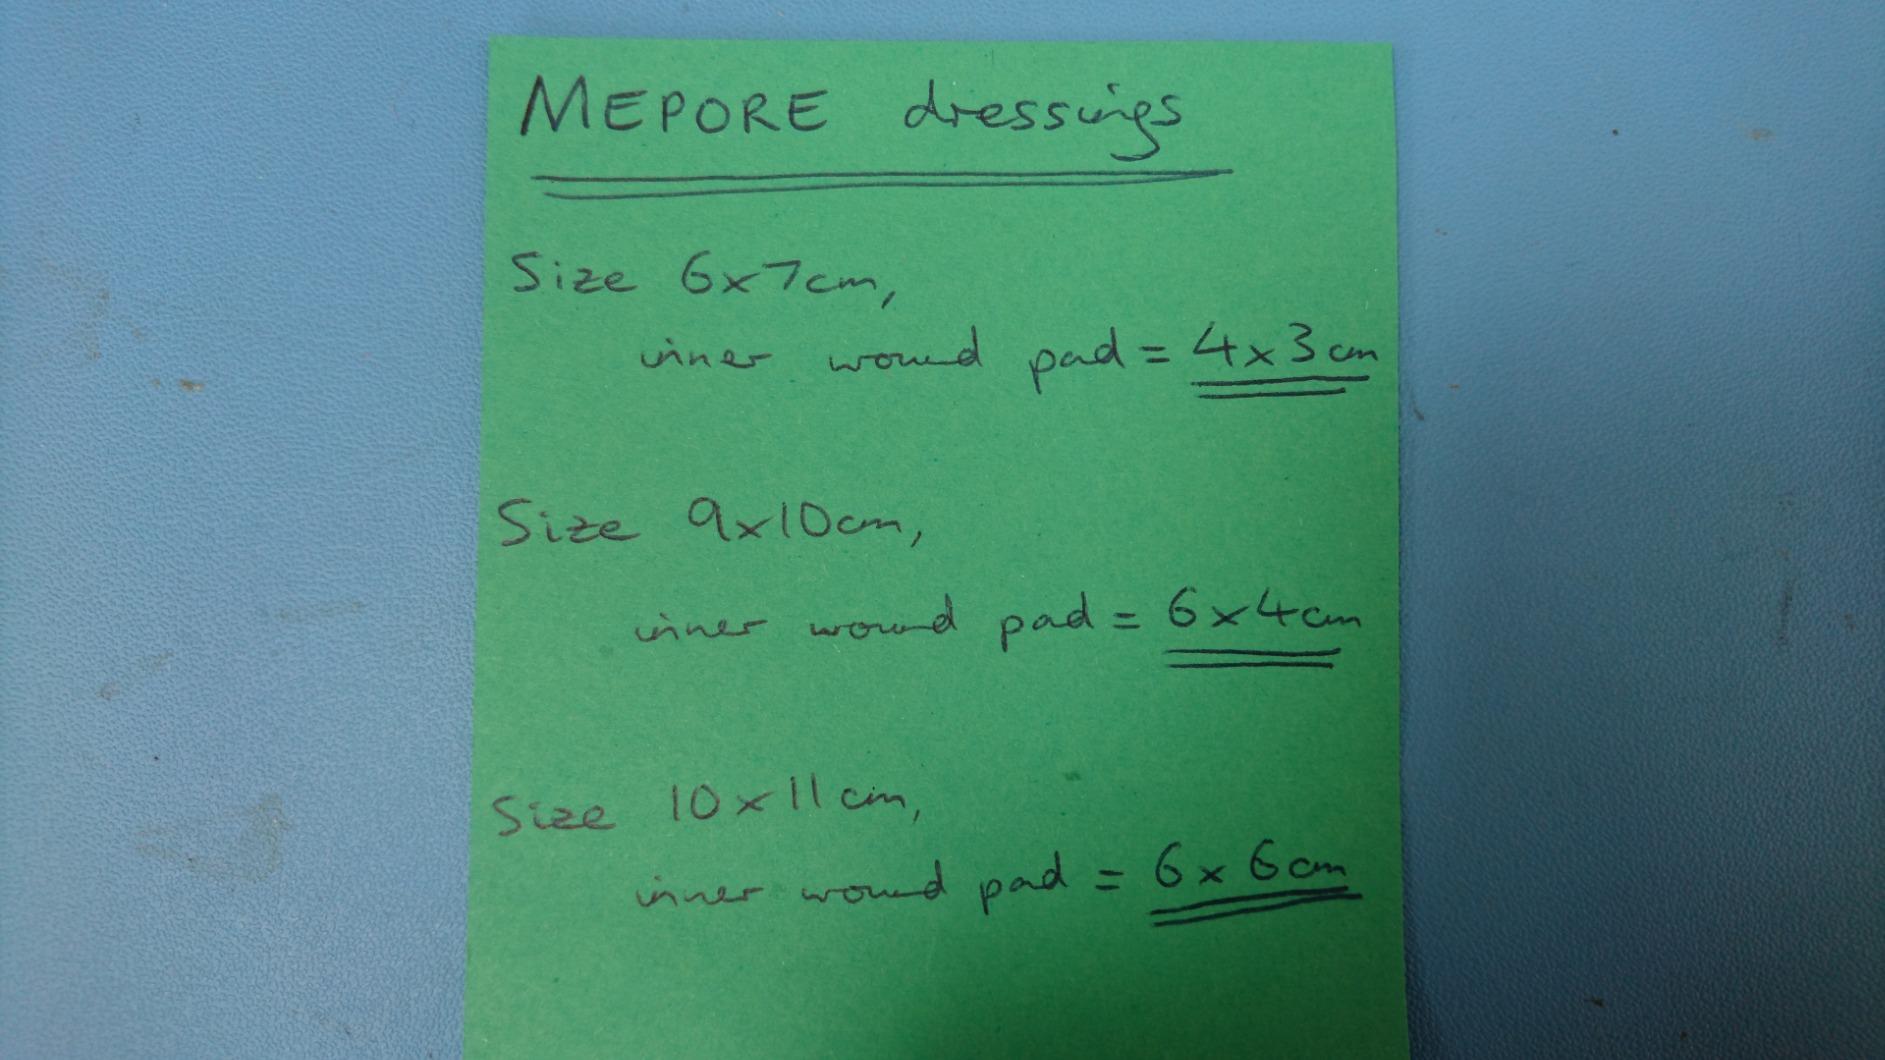 MEPORE dressings
Size 6x7cm,
inner wound pad = 4x3cm
Size 9x10cm,
inner wound pad = 6x4cm
Size 10x11cm,
inner wound pad = 6x6cm